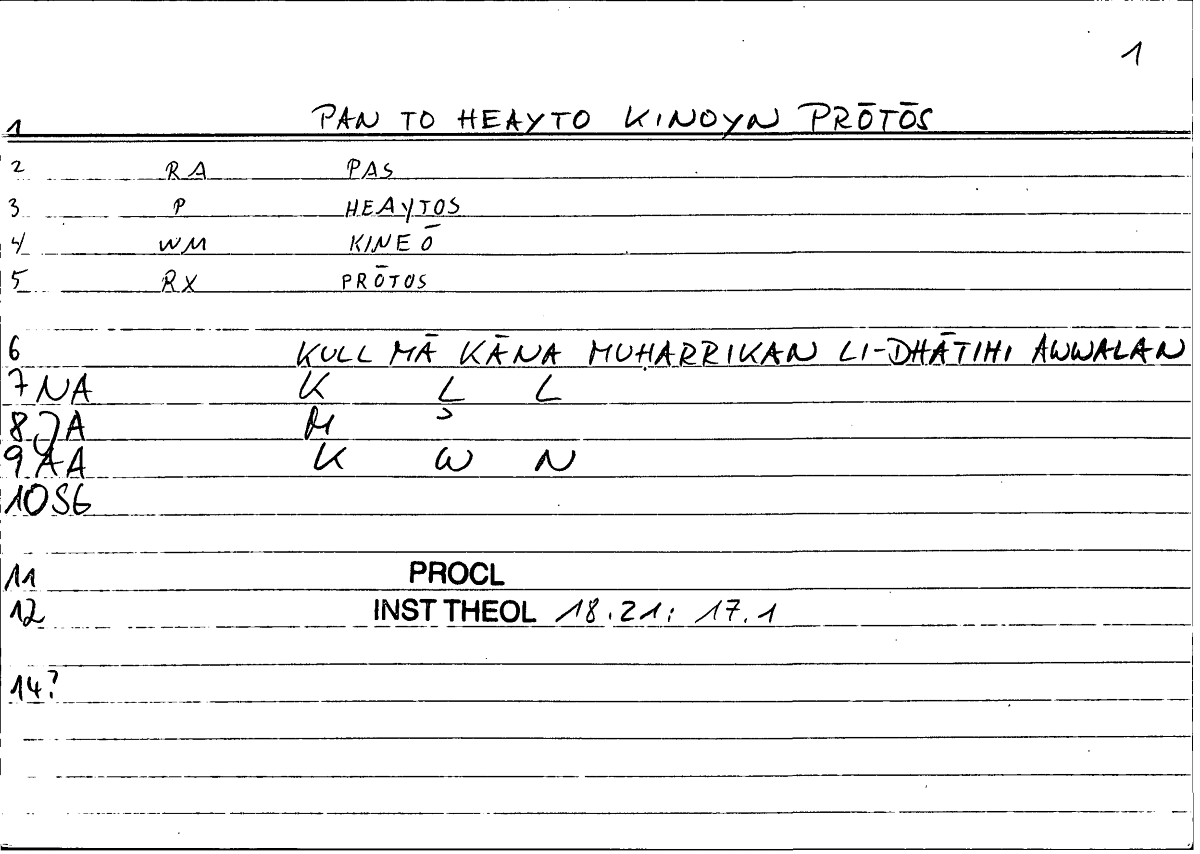 1
1 PAN TO HEAYTO KINOYN PRŌTŌS
2 RA PAS
3 P HEAYTOS
4 WM KINEŌ
5 RX PRŌTOS
6 KULL MĀ KĀNA MUḤARRIKAN LI-DHĀTIHI AWWALAN
7 NA K L L
8 JA M ʾ
9 AA K W N
10 S6
11 PROCL
12 INST THEOL 18.21; 17.1
14?